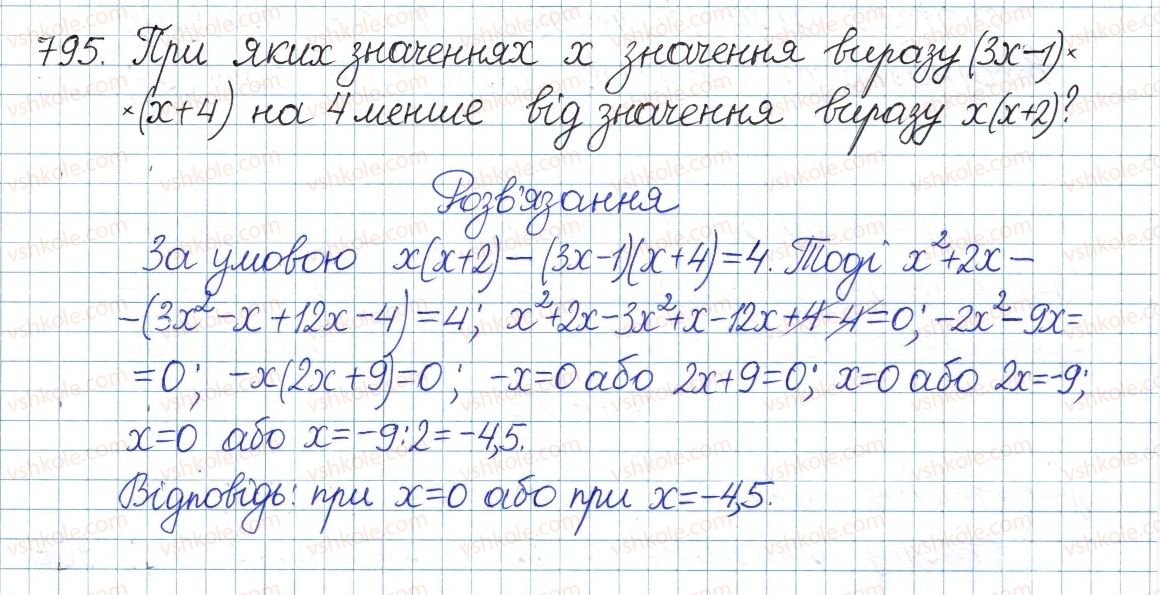 795. При яких значеннях x значення виразу (3x-1)×
×(x+4) на 4 менше від значення виразу x(x+2)?
Розв'язання
За умовою x(x+2)-(3x-1)(x+4)=4. Тоді x²+2x-
-(3x²-x+12x-4)=4; x²+2x-3x²+x-12x+4-4=0; -2x²-9x=
=0; -x(2x+9)=0; -x=0 або 2x+9=0; x=0 або 2x=-9;
x=0 або x=-9:2=-4,5.
Відповідь: при x=0 або при x=-4,5.